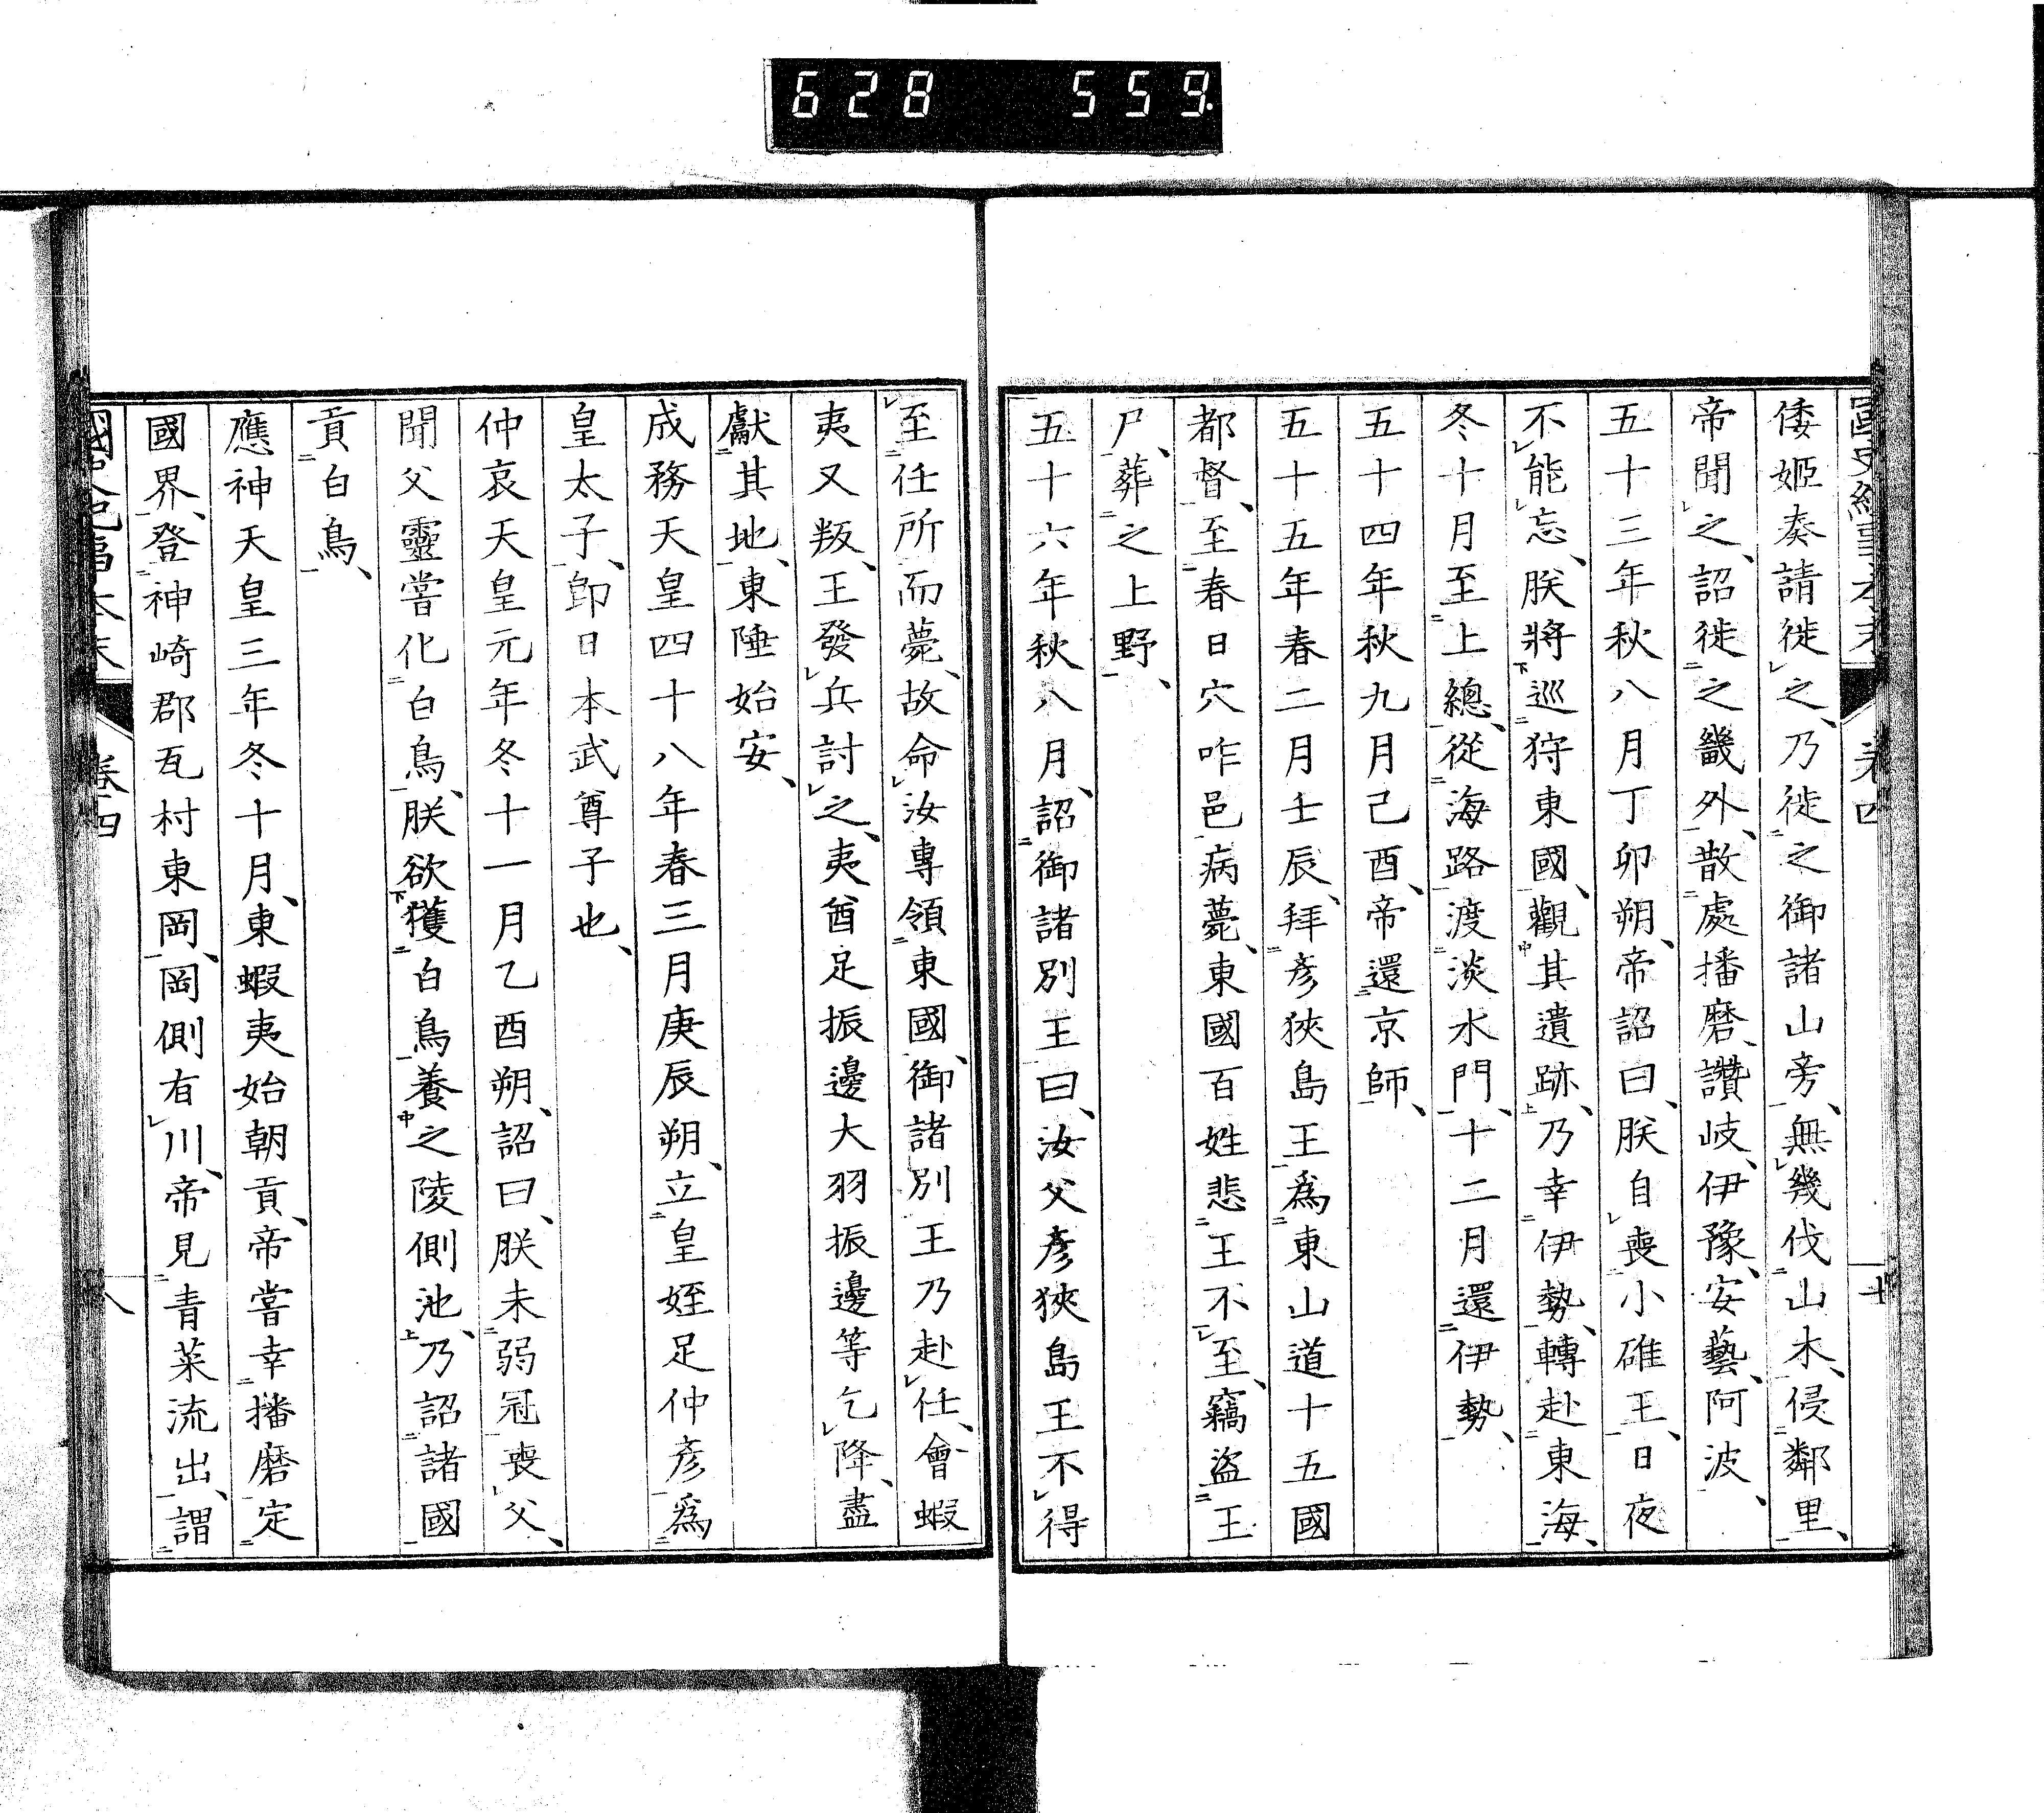 628 559.
國史紀事本末 卷四 十
倭姬奏請徙之、乃徙之御諸山旁、無幾伐山木、侵鄰里、
帝聞之、詔徙之畿外、散處播磨、讚岐、伊豫、安藝、阿波、
五十三年秋八月丁卯朔、帝詔曰、朕自喪小碓王、日夜
不能忘、朕將巡狩東國、觀其遺跡、乃幸伊勢、轉赴東海、
冬十月至上總、從海路渡淡水門、十二月還伊勢、
五十四年秋九月己酉、帝還京師、
五十五年春二月壬辰、拜彥狹島王爲東山道十五國
都督、至春日穴咋邑、病薨、東國百姓悲王不至、竊盜王
尸、葬之上野、
五十六年秋八月、詔御諸別王曰、汝父彥狹島王不得
至任所而薨、故命汝專領東國、御諸別王乃赴任、會蝦
夷又叛、王發兵討之、夷酋足振邊大羽振邊等乞降、盡
獻其地、東陲始安、
成務天皇四十八年春三月庚辰朔、立皇姪足仲彥爲
皇太子、卽日本武尊子也、
仲哀天皇元年冬十一月乙酉朔、詔曰、朕未弱冠喪父、
聞父靈嘗化白鳥、朕欲獲白鳥養之陵側池、乃詔諸國
貢白鳥、
應神天皇三年冬十月、東蝦夷始朝貢、帝嘗幸播磨定
國界、登神崎郡瓦村東岡、岡側有川、帝見青菜流出、謂
國史紀事本末 卷四 八